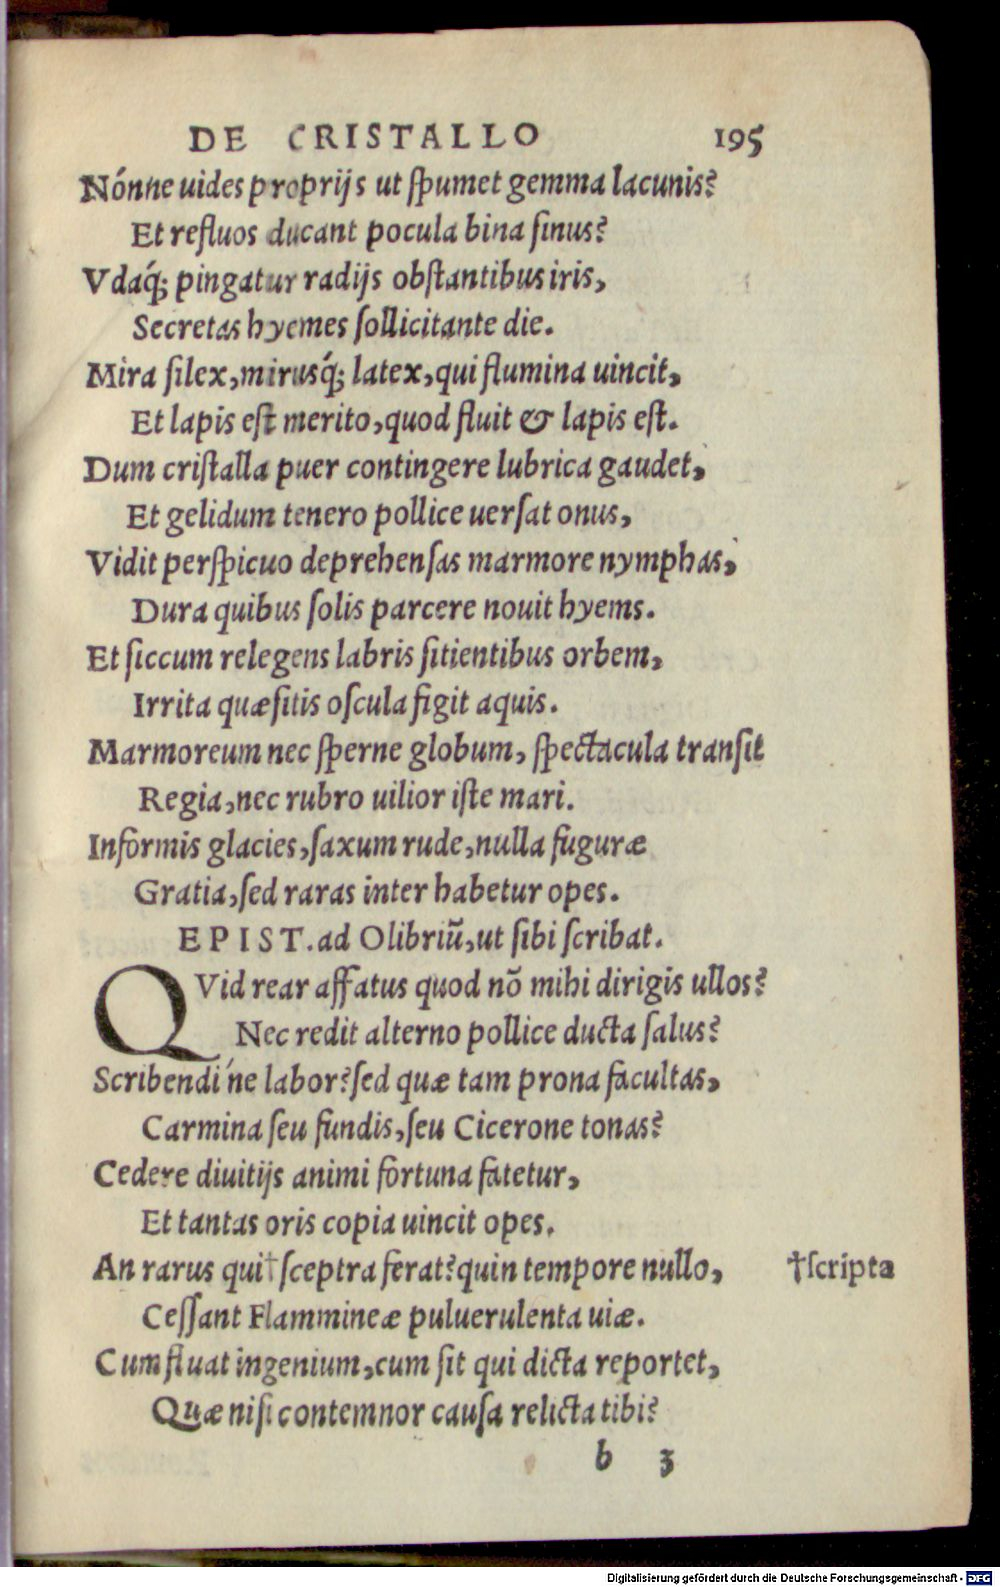 DE CRISTALLO 195
Nónne uides proprijs ut ſpumet gemma lacunis?
Et refluos ducant pocula bina ſinus?
Vdaq́; pingatur radijs obſtantibus iris,
Secretas hyemes ſollicitante die.
Mira ſilex, mirusq́; latex, qui flumina uincit,
Et lapis eſt merito, quod fluit & lapis eſt.
Dum criſtalla puer contingere lubrica gaudet,
Et gelidum tenero pollice uerſat onus,
Vidit perſpicuo deprehenſas marmore nymphas,
Dura quibus ſolis parcere nouit hyems.
Et ſiccum relegens labris ſitientibus orbem,
Irrita quæſitis oſcula figit aquis.
Marmoreum nec ſperne globum, ſpectacula tranſit
Regia, nec rubro uilior iſte mari.
Informis glacies, ſaxum rude, nulla fuguræ
Gratia, ſed raras inter habetur opes.
EPIST. ad Olibriũ, ut ſibi ſcribat.
QVid rear affatus quod nõ mihi dirigis ullos?
Nec redit alterno pollice ducta ſalus?
Scribendi ́ne labor? ſed quæ tam prona facultas,
Carmina ſeu fundis, ſeu Cicerone tonas?
Cedere diuitijs animi fortuna fatetur,
Et tantas oris copia uincit opes.
An rarus qui † ſceptra ferat? quin tempore nullo, †ſcripta
Ceſſant Flammineæ puluerulenta uiæ.
Cum fluat ingenium, cum ſit qui dicta reportet,
Quæ niſi contemnor cauſa relicta tibi?
b 3
Digitalisierung gefördert durch die Deutsche Forschungsgemeinschaft - DFG